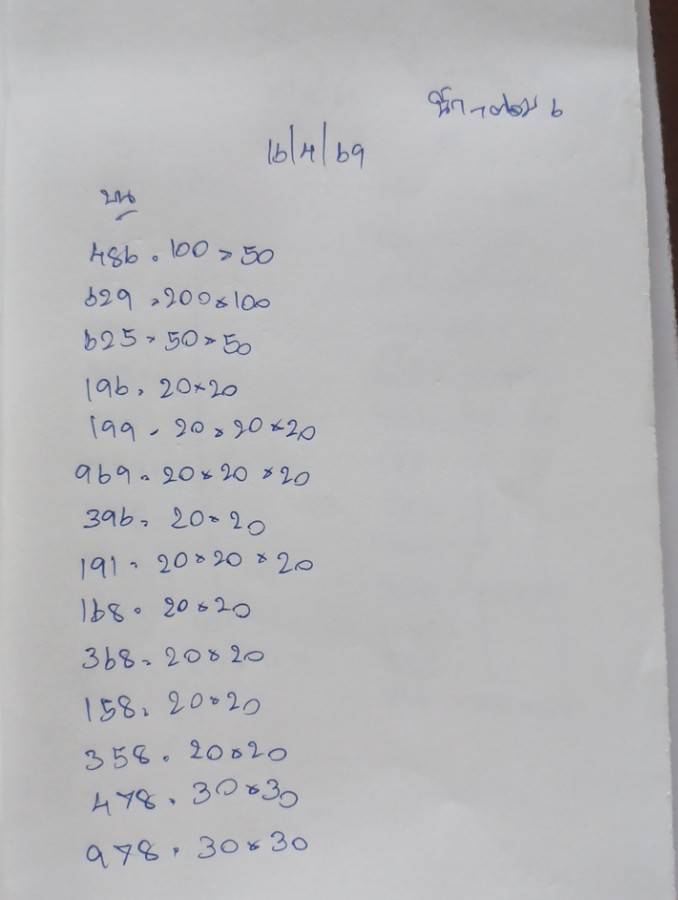 6
16/4/69
บน
486 = 100 × 50
629 = 200 × 100
625 = 50 × 50
196 = 20 × 20
199 = 20 × 20 × 20
969 = 20 × 20 × 20
396 = 20 × 20
191 = 20 × 20 × 20
168 = 20 × 20
368 = 20 × 20
158 = 20 × 20
358 = 20 × 20
478 = 30 × 30
978 = 30 × 30